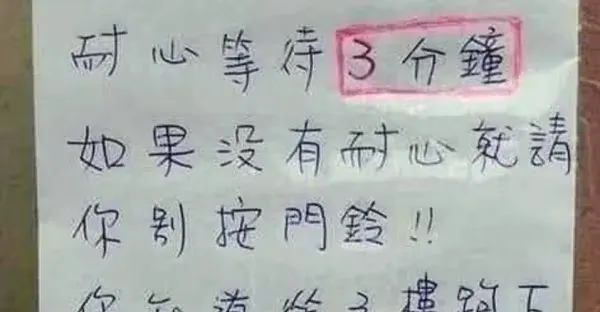 耐心等待3分鐘
如果没有耐心就請
你别按門鈴!!
你知道從3樓跑下